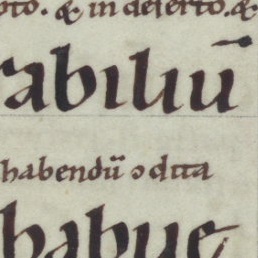 pto. & in deserto. &
abiliū
habendū ꝯdita
habue